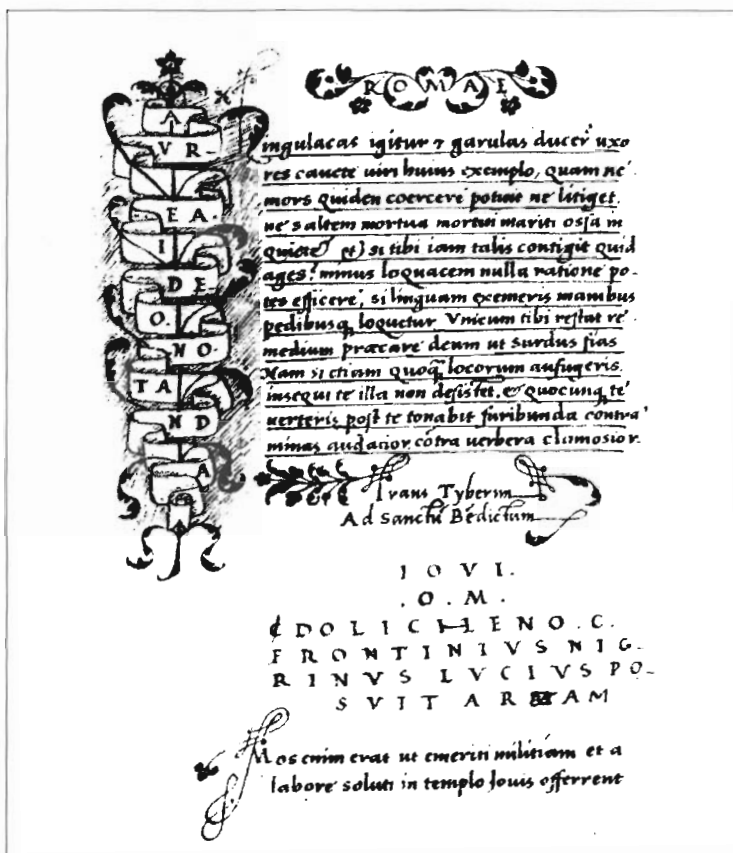 A
VR-
EA.
I
DE
O.
NO-
TA
ND
A
ROMAE
Lingulacas igitur ⁊ garulas ducer' uxo
res cauete uiri huius exemplo, quam ne'
mors quiden coercere potuit ne litiget.
ne saltem mortua mortui mariti ossa in
quiete' et) si tibi iam talis contigit quid
ages? minus loquacem nulla ratione po-
tes efficere', si linguam exemeris manibus
pedibusq loquetur Vnicum tibi restat re'
medium præcare deum ut surdus fias
Nam si etiam quoq locorum aufugeris.
insequi te illa non desistet. & quocunq te'
uerteris post te tonabit furibunda contra'
minas audatior, cõtra uerbera clamosior.
Trans Tyberim
Ad Sanctũ Bẽdictum
IOVI.
.O.M.
DOLICHENO.C.
FRONTINIVS NIG-
RINVS LVCIVS PO-
SVIT ARAM
Mos enim erat ut emeriti militiam et a
labore soluti in templo Jouis offerrent